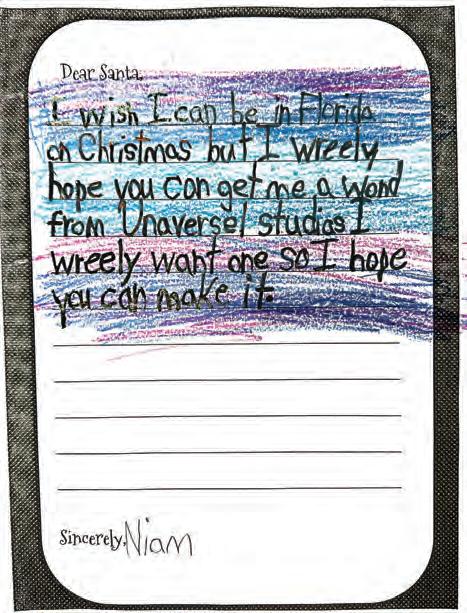 Dear Santa,
I wish I can be in Florida
on Christmas but I wreely
hope you can get me a wond
from Unaversel studios I
wreely want one so I hope
you can make it.
Sincerely, Niam